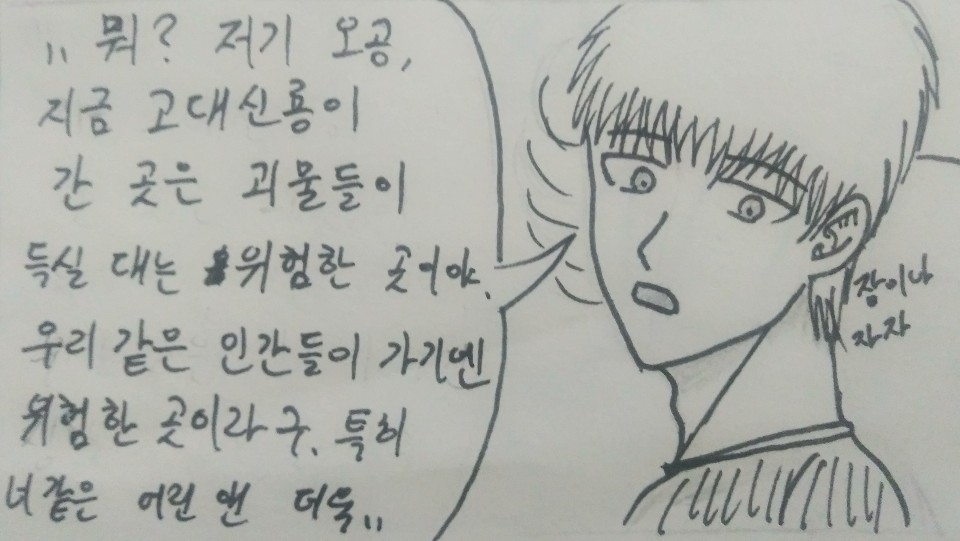 ,, 뭐? 저기 오공,
지금 고대신룡이
간 곳은 괴물들이
득실 대는 위험한 곳이야.
우리 같은 인간들이 가기엔
위험한 곳이라구. 특히
너 같은 어린 앤 더욱,,
잠이나
자자